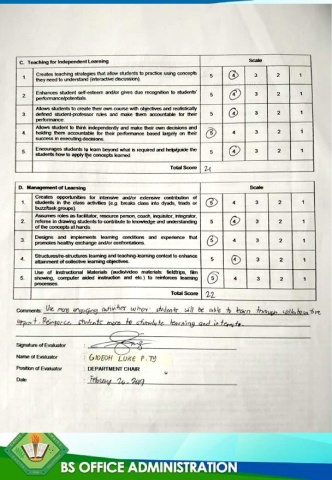 C. Teaching for Independent Learning Scale
1. Creates teaching strategies that allow students to practice using concepts they need to understand (interactive discussion) 5 4 3 2 1
2. Enhances student self-esteem and/or gives due recognition to students' performance/potentials. 5 4 3 2 1
3. Allows students to create their own course with objectives and realistically defined student-professor rules and make them accountable for their performance. 5 4 3 2 1
4. Allows student to think independently and make their own decisions and holding them accountable for their performance based largely on their success in executing decisions. 5 4 3 2 1
5. Encourages students to learn beyond what is required and help/guide the students how to apply the concepts learned 5 4 3 2 1
Total Score 21
D. Management of Learning Scale
1. Creates opportunities for intensive and/or extensive contribution of students in the class activities (e.g. breaks class into dyads, triads or buzz/task groups). 5 4 3 2 1
2. Assumes roles as facilitator, resource person, coach, inquisitor, integrator, referee in drawing students to contribute to knowledge and understanding of the concepts at hands. 5 4 3 2 1
3. Designs and implements learning conditions and experience that promotes healthy exchange and/or confrontations. 5 4 3 2 1
4. Structures/re-structures learning and teaching-learning context to enhance attainment of collective learning objectives. 5 4 3 2 1
5. Use of Instructional Materials (audio/video materials: fieldtrips, film showing, computer aided instruction and etc.) to reinforces learning processes. 5 4 3 2 1
Total Score 22
Comments: Use more engaging activities where students will be able to learn through
report. Reinforce students more to stimulate learning and
Signature of Evaluator
Name of Evaluator GIDEON LUKE P. TY
Position of Evaluator DEPARTMENT CHAIR
Date February 26, 2019
BS OFFICE ADMINISTRATION